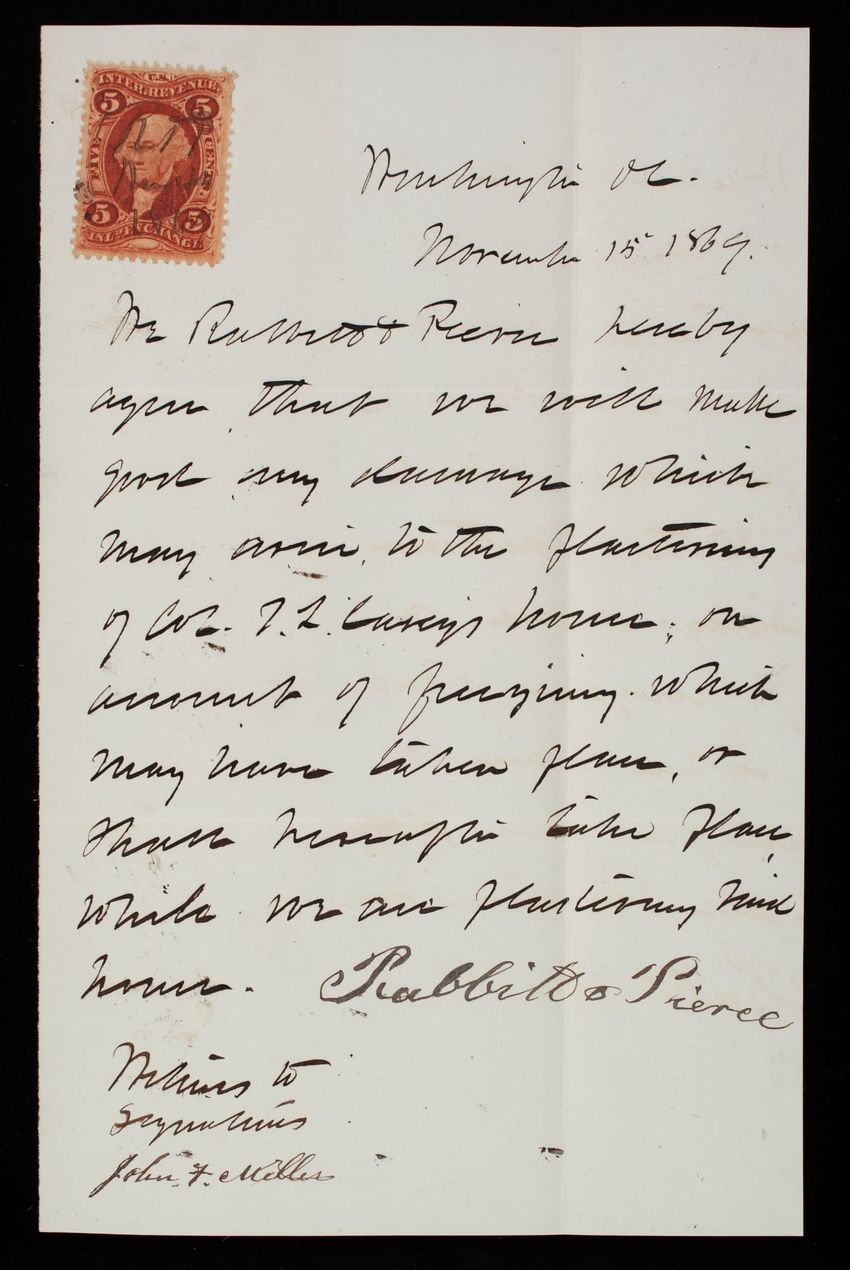 U.S.
INTER. REVENUE
5 5
FIVE CENTS
5 5
INL. EXCHANGE
Washington DC.
November 15 1869.
We Rabbitt & Pierce hereby
agree that we will make
good any damage which
may arise, to the plastering
of Col. T. L. Casey's house, on
account of freezing which
may have taken place, or
shall hereafter take place,
while we are plastering said
house. Rabbitt & Pierce
Witness to
signatures
John F. Miller